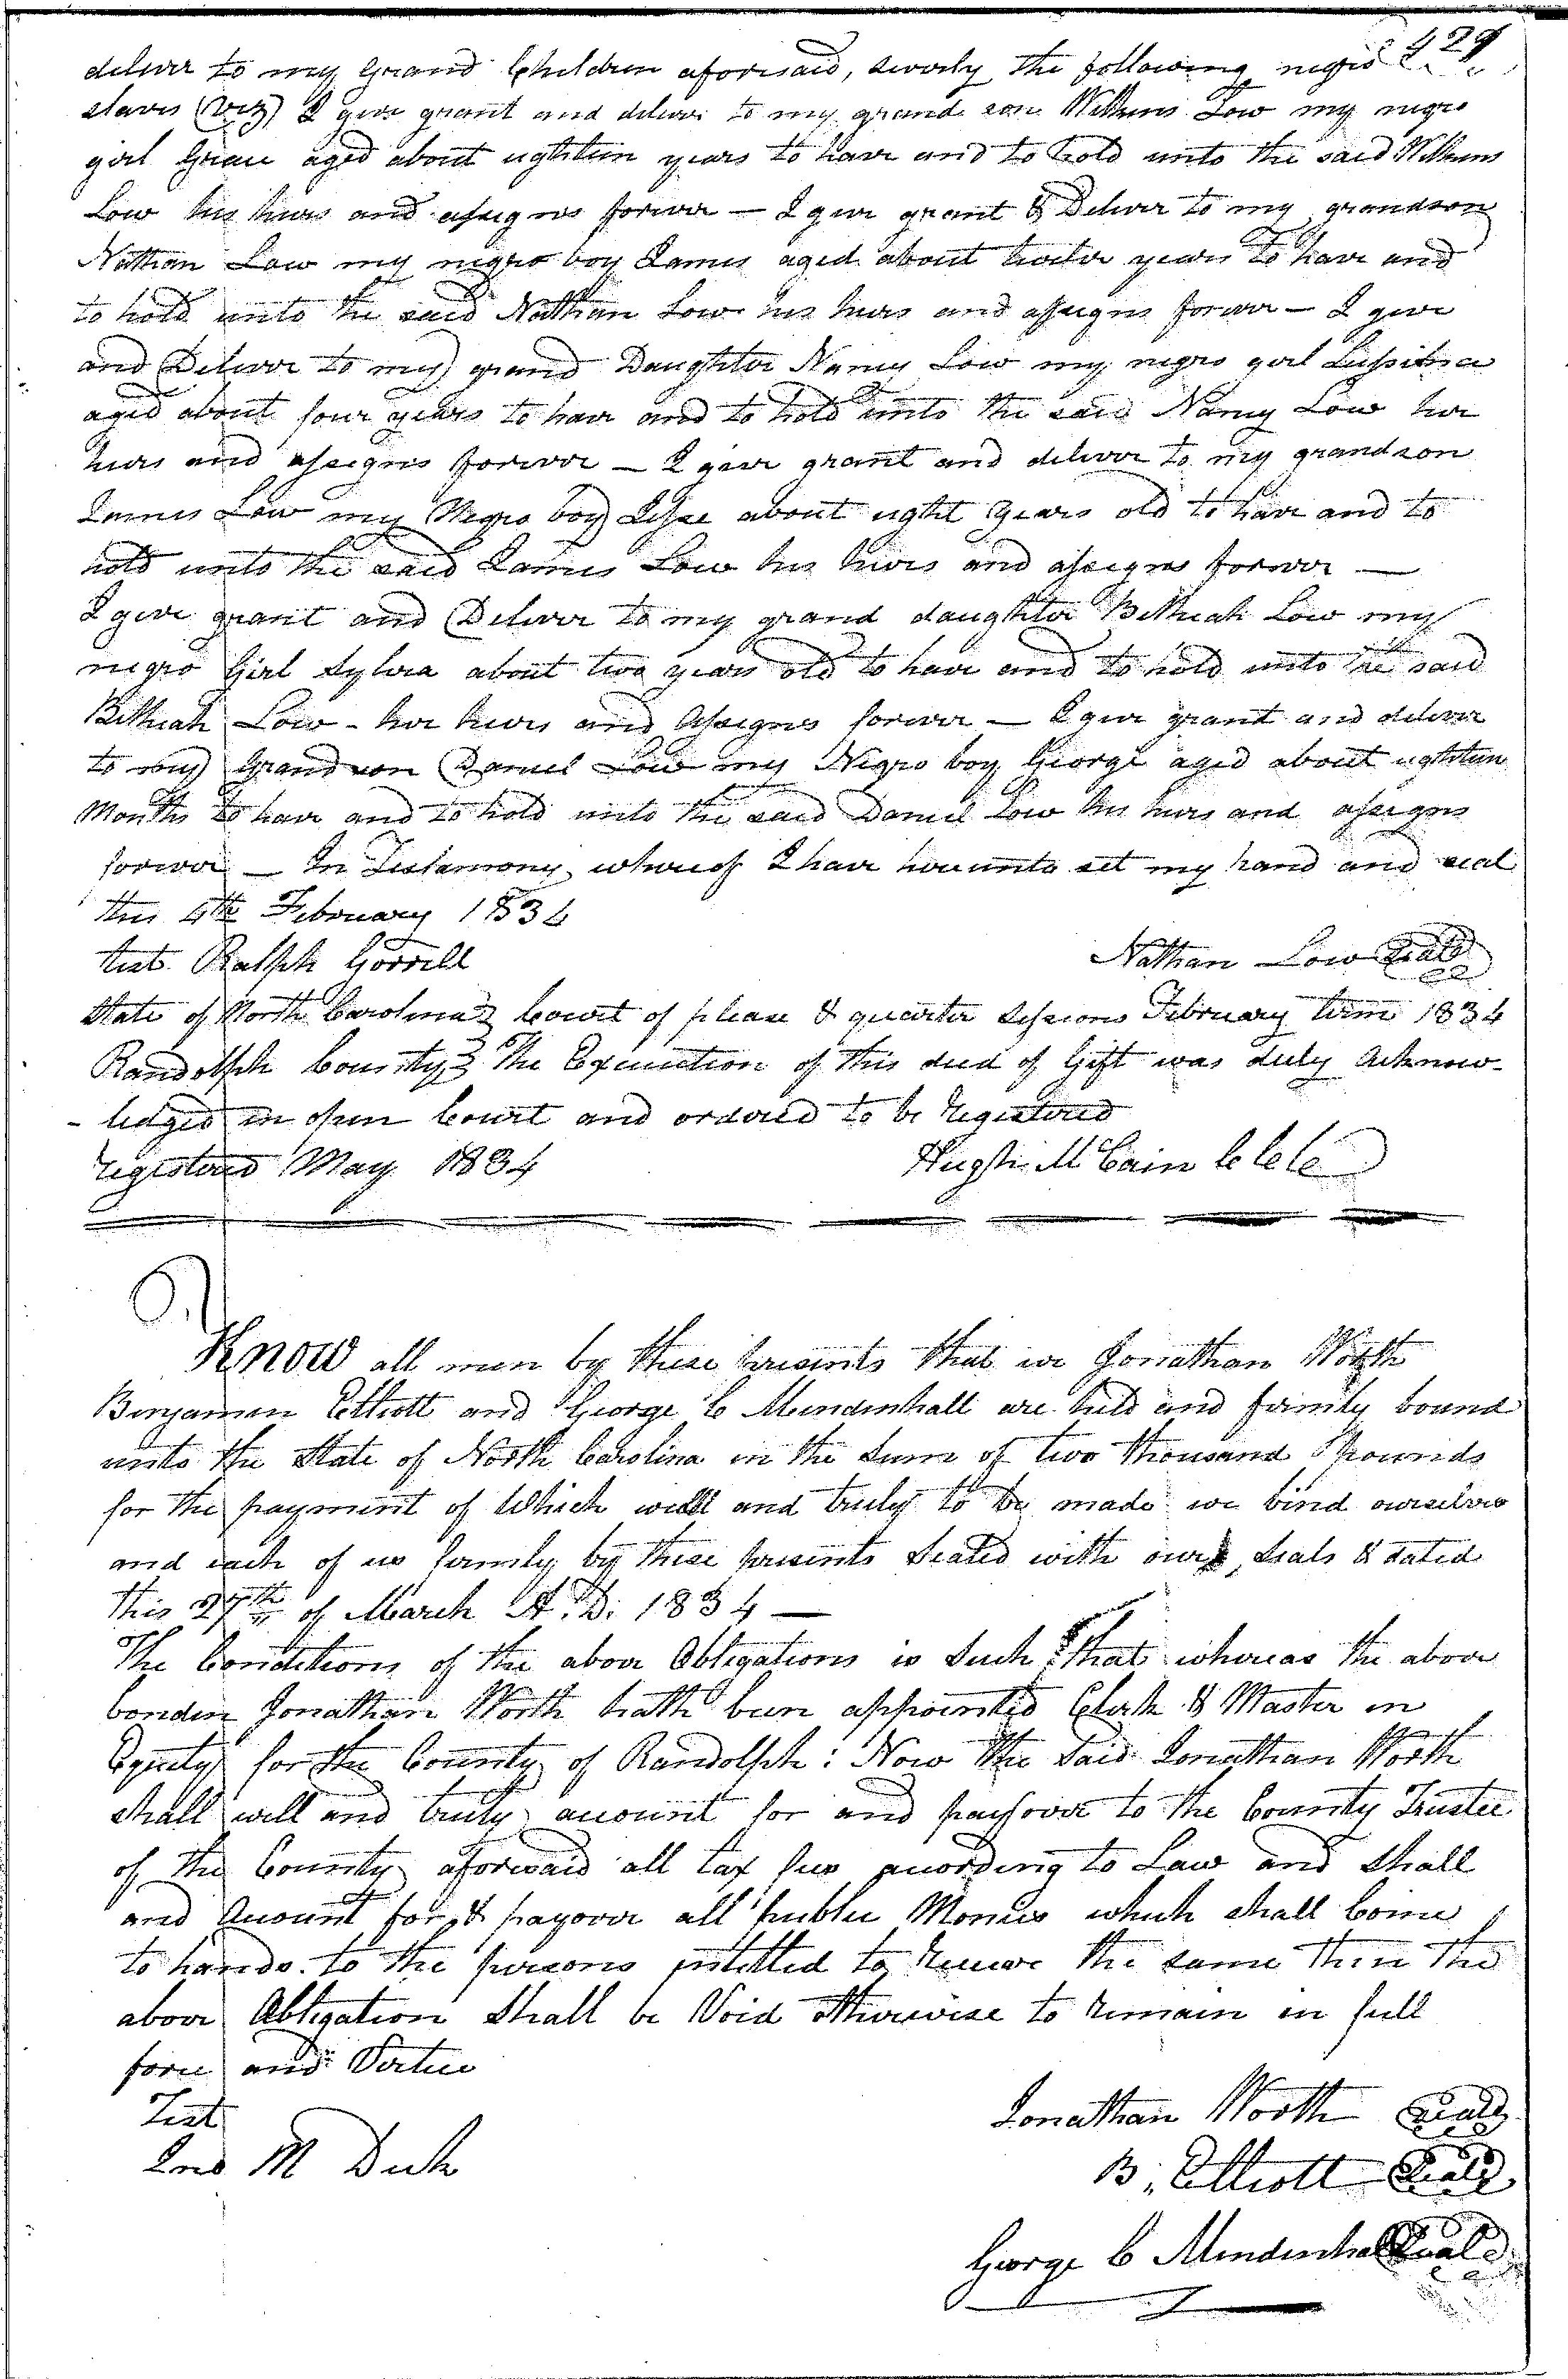 429
deliver to my Grand Children aforesaid, severly the following negro
slaves (viz) I give grant and deliver to my grand son Willkuns Low my negro
girl Grace aged about eighteen years to have and to hold unto the said Willkuns
Low his heirs and assigns forever — I give grant & Deliver to my grandson
Nathan Low my negro boy James aged about twelve years to have and
to hold unto the said Nathan Low his heirs and assigns forever — I give
and Deliver to my grand Daughter Nancy Low my negro girl
aged about four years to have and to hold unto the said Nancy Low her
heirs and assigns forever — I give grant and deliver to my grandson
James Low my Negro boy Jesse about eight years old to have and to
hold unto the said James Low his heirs and assigns forever —
I give grant and Deliver to my grand daughter Bethuah Low my
negro Girl Sylvia about two years old to have and to hold unto the said
Bethuah Low - her heirs and Assigns forever — I give grant and deliver
to my Grand son Daniel Low my Negro boy George aged about eighteen
Months to have and to hold unto the said Daniel Low his heirs and assigns
forever — In Testamony whereof I have hereunto set my hand and seal
this 4th February 1834
test. Ralph Gorrell Nathan Low Seal
State of North Carolina } Court of pleas & quarter Sessions February term 1834
Randolph County } The Execution of this deed of Gift was duly Acknow-
-ledged in open Court and ordered to be registered
registered May 1834 Hugh McCain C C C
Know all men by these presents that we Jonathan Worth
Benjamin Elliott and George C Mendenhall are held and firmly bound
unto the State of North Carolina in the Sum of two thousand Pounds
for the payment of Which well and truly to be made we bind ourselves
and each of us firmly by these presents Sealed with our Seals & dated
this 27th of March A. D. 1834 —
The Conditions of the above Obligations is Such that whereas the above
bonden Jonathan Worth hath been appointed Clerk & Master in
Equity for the County of Randolph: Now the Said Jonathan Worth
shall well and truly account for and pay over to the County Trustee
of the County aforesaid all tax fees according to Law and Shall
and Account for & payover all public Monies which shall Come
to hands to the persons intitled to Receive the same then the
above Obligation Shall be Void otherwise to Remain in full
force and Vertue
Test Jonathan Worth Seal
Jno M Dick B. Elliott Seal
George C Mendenhall Seal